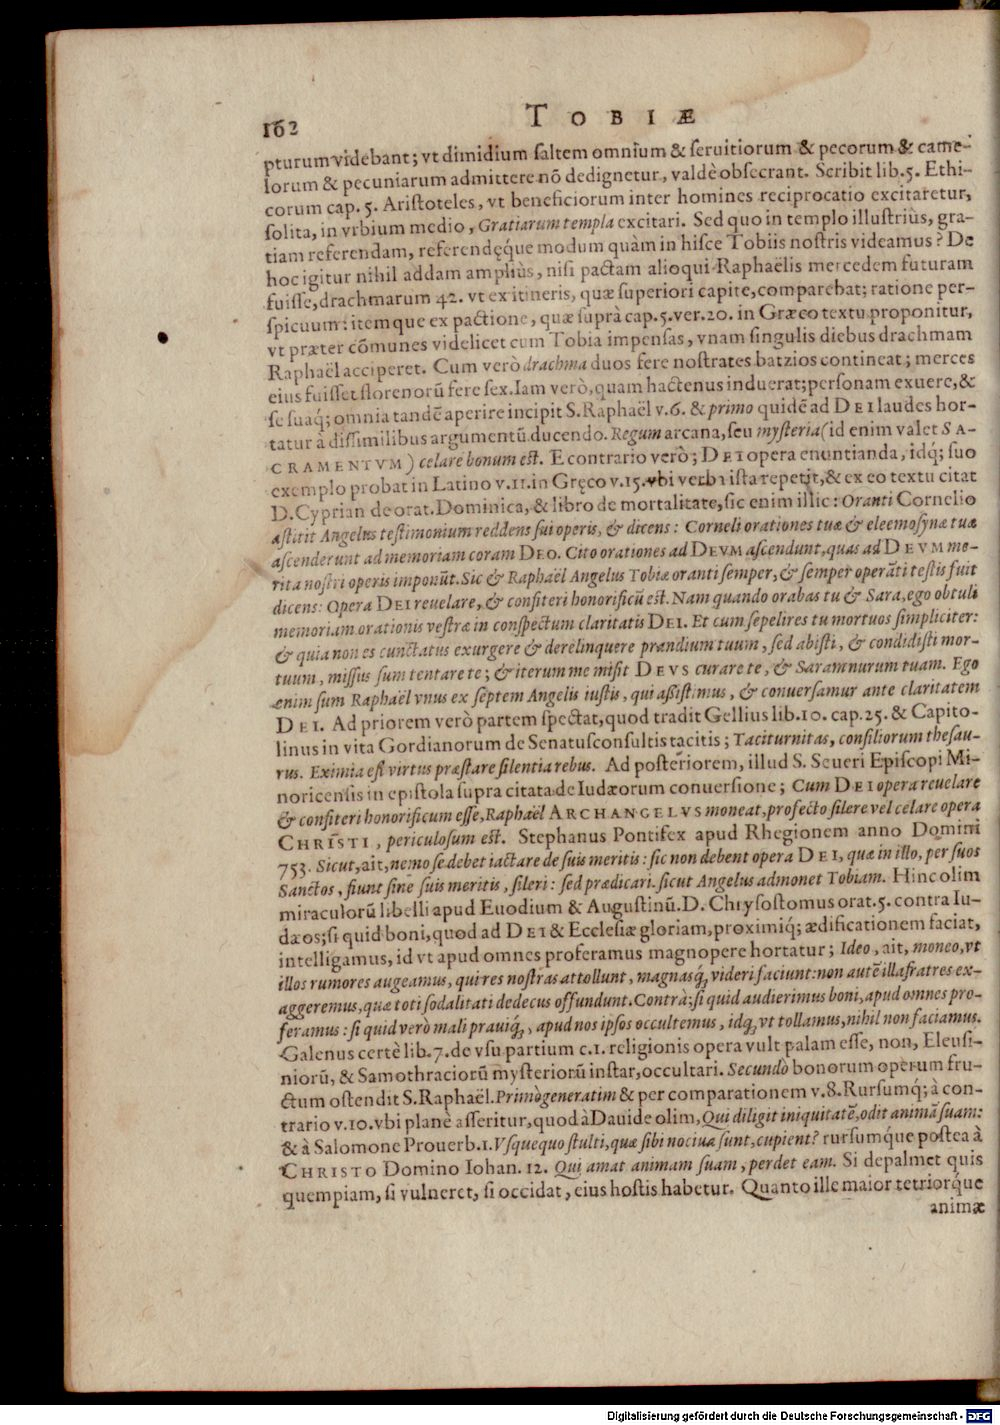 162 TOBIÆ
pturum videbant; vt dimidium ſaltem omnium & ſeruitiorum & pecorum & came-
lorum & pecuniarum admittere nō dedignetur, valdè obſecrant. Scribit lib.5. Ethi-
corum cap. 5. Ariſtoteles, vt beneficiorum inter homines reciprocatio excitaretur,
ſolita, in vrbium medio, Gratiarum templa excitari. Sed quo in templo illuſtriùs, gra-
tiam referendam, referendęq́ue modum quàm in hiſce Tobiis noſtris videamus? De
hoc igitur nihil addam ampliùs, niſi pactam alioqui Raphaëlis mercedem futuram
fuiſſe, drachmarum 42. vt ex itineris, quæ ſuperiori capite, comparebat; ratione per-
ſpicuum: itemque ex pactione, quæ ſuprà cap.5.ver.20. in Græco textu proponitur,
vt præter cōmunes videlicet cum Tobia impenſas, vnam ſingulis diebus drachmam
Raphaël acciperet. Cum verò drachma duos fere noſtrates batzios contineat; merces
eius fuiſſet florenorū fere ſex. Iam verò, quam hactenus induerat; perſonam exuere, &
ſe ſuaq́; omnia tandē aperire incipit S. Raphaël v.6. & primo quidē ad DEI laudes hor-
tatur à diſſimilibus argumentū ducendo. Regum arcana, ſeu myſteria (id enim valet SA-
CRAMENTVM) celare bonum eſt. E contrario verò; DEI opera enuntianda, idq́; ſuo
exemplo probat in Latino v.11. in Gręco v.15. vbi verba iſta repetit, & ex eo textu citat
D. Cyprian de orat. Dominica, & libro de mortalitate, ſic enim illic: Oranti Cornelio
aſtitit Angelus teſtimonium reddens ſui operis, & dicens: Corneli orationes tuæ & eleemoſynæ tuæ
aſcenderunt ad memoriam coram DEO. Cito orationes ad DEVM aſcendunt, quas ad DEVM me-
rita noſtri operis imponūt. Sic & Raphaël Angelus Tobiæ oranti ſemper, & ſemper operāti teſtis fuit
dicens: Opera DEI reuelare, & confiteri honorificū eſt. Nam quando orabas tu & Sara, ego obtuli
memoriam orationis veſtræ in conſpectum claritatis DEI. Et cum ſepelires tu mortuos ſimpliciter:
& quia non es cunctatus exurgere & derelinquere prandium tuum, ſed abiſti, & condidiſti mor-
tuum, miſſus ſum tentare te; & iterum me miſit DEVS curare te, & Saram nurum tuam. Ego
enim ſum Raphaël vnus ex ſeptem Angelis iuſtis, qui aſſiſtimus, & conuerſamur ante claritatem
DEI. Ad priorem verò partem ſpectat, quod tradit Gellius lib.10. cap.25. & Capito-
linus in vita Gordianorum de Senatuſconſultis tacitis; Taciturnitas, conſiliorum theſau-
rus. Eximia eſt virtus præſtare ſilentia rebus. Ad poſteriorem, illud S. Seueri Epiſcopi Mi-
noricenſis in epiſtola ſupra citata de Iudæorum conuerſione; Cum DEI opera reuelare
& confiteri honorificum eſſe, Raphaël ARCHANGELVS moneat, profecto ſilere vel celare opera
CHRISTI, periculoſum eſt. Stephanus Pontifex apud Rhegionem anno Domini
753. Sicut, ait, nemo ſe debet iactare de ſuis meritis: ſic non debent opera DEI, quæ in illo, per ſuos
Sanctos, fiunt ſine ſuis meritis, ſileri: ſed prædicari. ſicut Angelus admonet Tobiam. Hinc olim
miraculorū libelli apud Euodium & Auguſtinū. D. Chryſoſtomus orat.5. contra Iu-
dæos; ſi quid boni, quod ad DEI & Eccleſiæ gloriam, proximiq́; ædificationem faciat,
intelligamus, id vt apud omnes proferamus magnopere hortatur; Ideo, ait, moneo, vt
illos rumores augeamus, qui res noſtras attollunt, magnasq́; videri faciunt: non autē illa fratres ex-
aggeremus, quæ toti ſodalitati dedecus offundunt. Contrà; ſi quid audierimus boni, apud omnes pro-
feramus: ſi quid verò mali prauiq́;, apud nos ipſos occultemus, idq́; vt tollamus, nihil non faciamus.
Galenus certè lib.7. de vſu partium c.1. religionis opera vult palam eſſe, non, Eleuſi-
niorū, & Samothraciorū myſteriorū inſtar, occultari. Secundò bonorum operum fru-
ctum oſtendit S. Raphaël. Primò generatim & per comparationem v.8. Rurſumq́; à con-
trario v.10. vbi planè aſſeritur, quod à Dauide olim, Qui diligit iniquitatē, odit animā ſuam:
& à Salomone Prouerb.1. Vſquequo ſtulti, quæ ſibi nociua ſunt, cupient? rurſumq́ue poſtea à
CHRISTO Domino Iohan. 12. Qui amat animam ſuam, perdet eam. Si depalmet quis
quempiam, ſi vulneret, ſi occidat, eius hoſtis habetur. Quanto ille maior tetriorq́ue
animæ
Digitalisierung gefördert durch die Deutsche Forschungsgemeinschaft - DFG